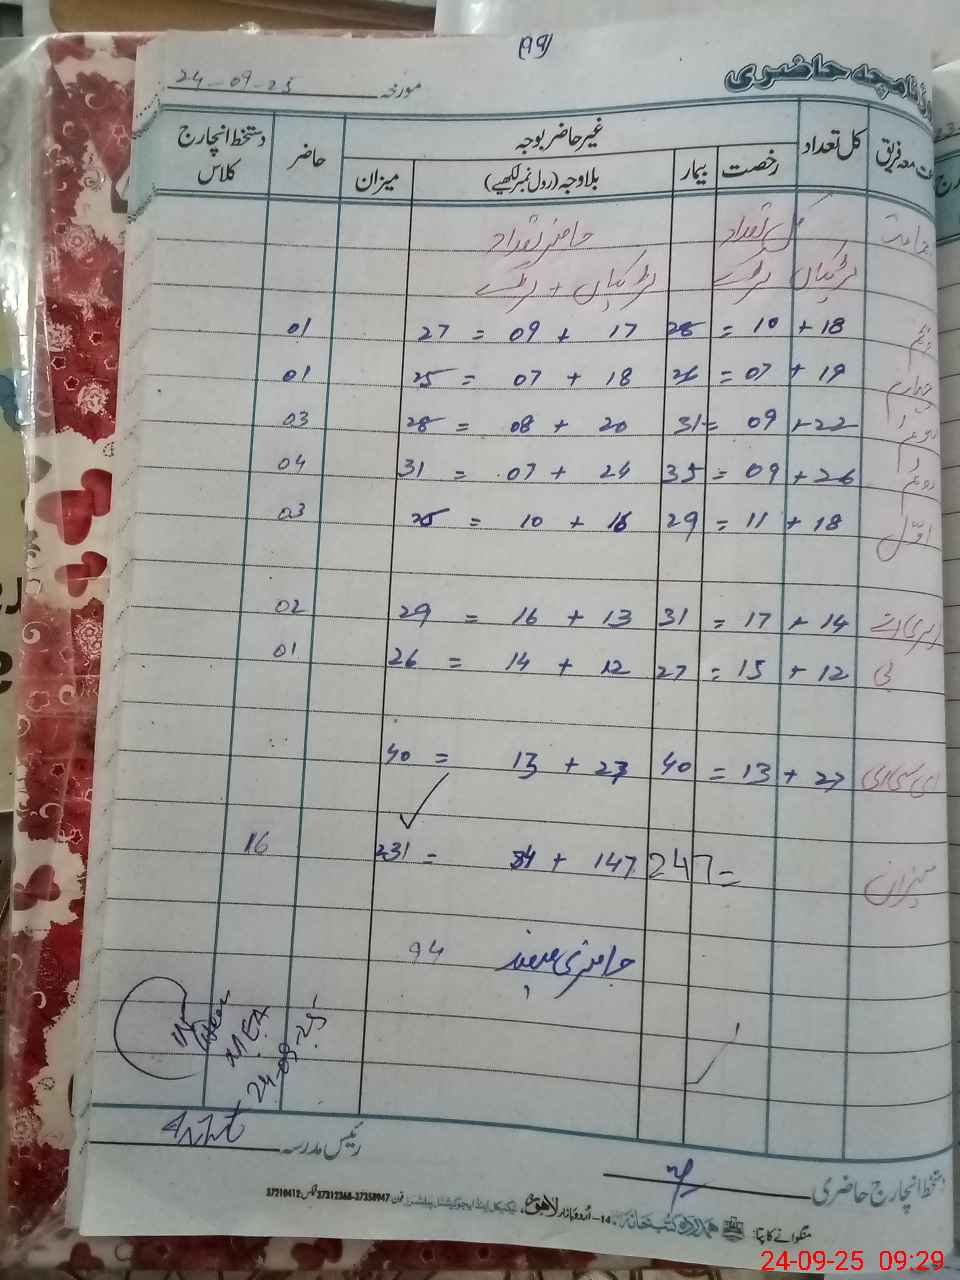 (99)
روزنامچہ حاضری
مورخہ 24-09-25
جماعت معہ فریق | کل تعداد | غیر حاضر بوجہ | حاضر | دستخط انچارج کلاس
رخصت | بیمار | بلاوجہ (رول نمبر لکھیے) | میزان
جماعت | کل تعداد | حاضر تعداد
لڑکیاں لڑکے | لڑکیاں + لڑکے
پنجم 18 + 10 = 28 | 17 + 09 = 27 | 01
چہارم 19 + 07 = 26 | 18 + 07 = 25 | 01
22 + 09 = 31 | 20 + 08 = 28 | 03
دوئم 26 + 09 = 35 | 24 + 07 = 31 | 04
اوّل 18 + 11 = 29 | 16 + 10 = 25 | 03
14 + 17 = 31 | 13 + 16 = 29 | 02
بی 12 + 15 = 27 | 12 + 14 = 26 | 01
ای سی سی ای 27 + 13 = 40 | 27 + 13 = 40
میزان = 247 | 147 + 84 = 231 | 16
حاضری فیصد 94
MEA
24-09-25
رئیس مدرسہ
دستخط انچارج حاضری
منگوانے کا پتا: ہمدرد کتب خانہ 14-اُردو بازار لاہور۔ ٹیکنیکل اینڈ ایجوکیشنل پبلشرز فون 37358947-37312368 فیکس: 37210412
24-09-25 09:29